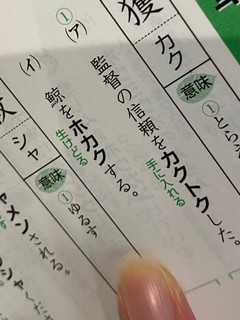 獲
カク
意味
①とらえ
監督の信頼をカクトクした。
手に入れる
①
(ア)
鯨をホカクする。
生けどる
(イ)
シャ
意味
①ゆるす
メンされる。